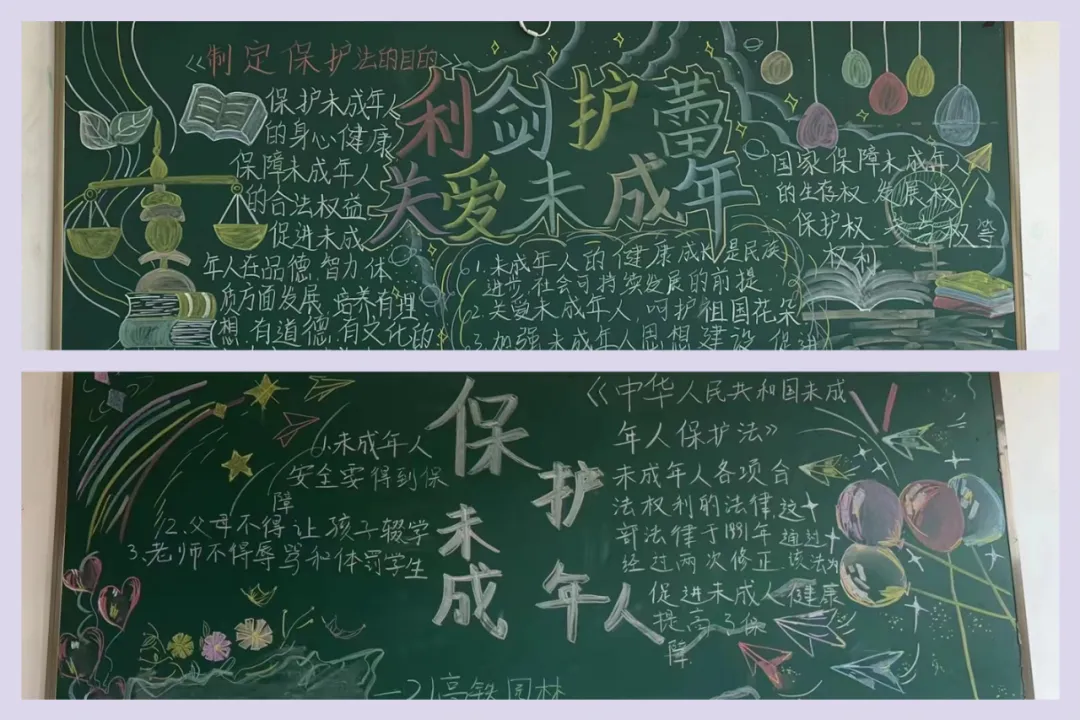 《制定保护法的目的》
保护未成年人
的身心健康
保障未成年人
的合法权益
促进未成
年人在品德.智力.体
质方面发展.培养有理
想.有道德.有文化的
利剑护蕾
关爱未成年
1.未成年人的健康成长是民族
进步.社会可持续发展的前提
2.关爱未成年人,呵护祖国花朵
3.加强未成年人思想建设 促进
国家保障未成年人
的生存权.发展权
保护权.参与权等
权利
保护
未成年人
1.未成年人
安全要得到保
障
2.父母不得让孩子辍学
3.老师不得辱骂和体罚学生
《中华人民共和国未成
年人保护法》
未成年人各项合
法权利的法律,这
部法律于1991年通过
经过两次修正.该法为
促进未成人健康
提高了保
障
一21高铁园林